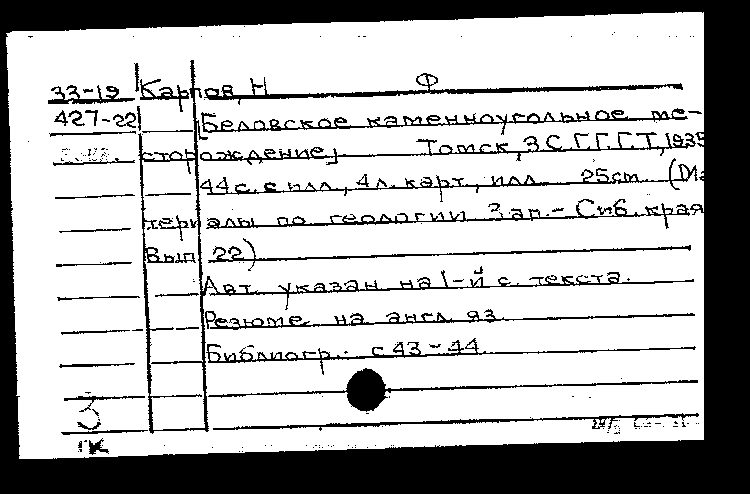 33-19 Карпов, Н Ф
427-22 [Беловское каменноугольное ме-
сторождение] Томск, З.С.Г.Г.Г.Т, 1935
44 с. с илл., 4 л. карт., илл. 25 cm (Ма
териалы по геологии Зап.-Сиб. края
Вып 22)
Авт. указан на 1-й с. текста.
Резюме на англ яз.
Библиогр.: с 43-44
3
ГК